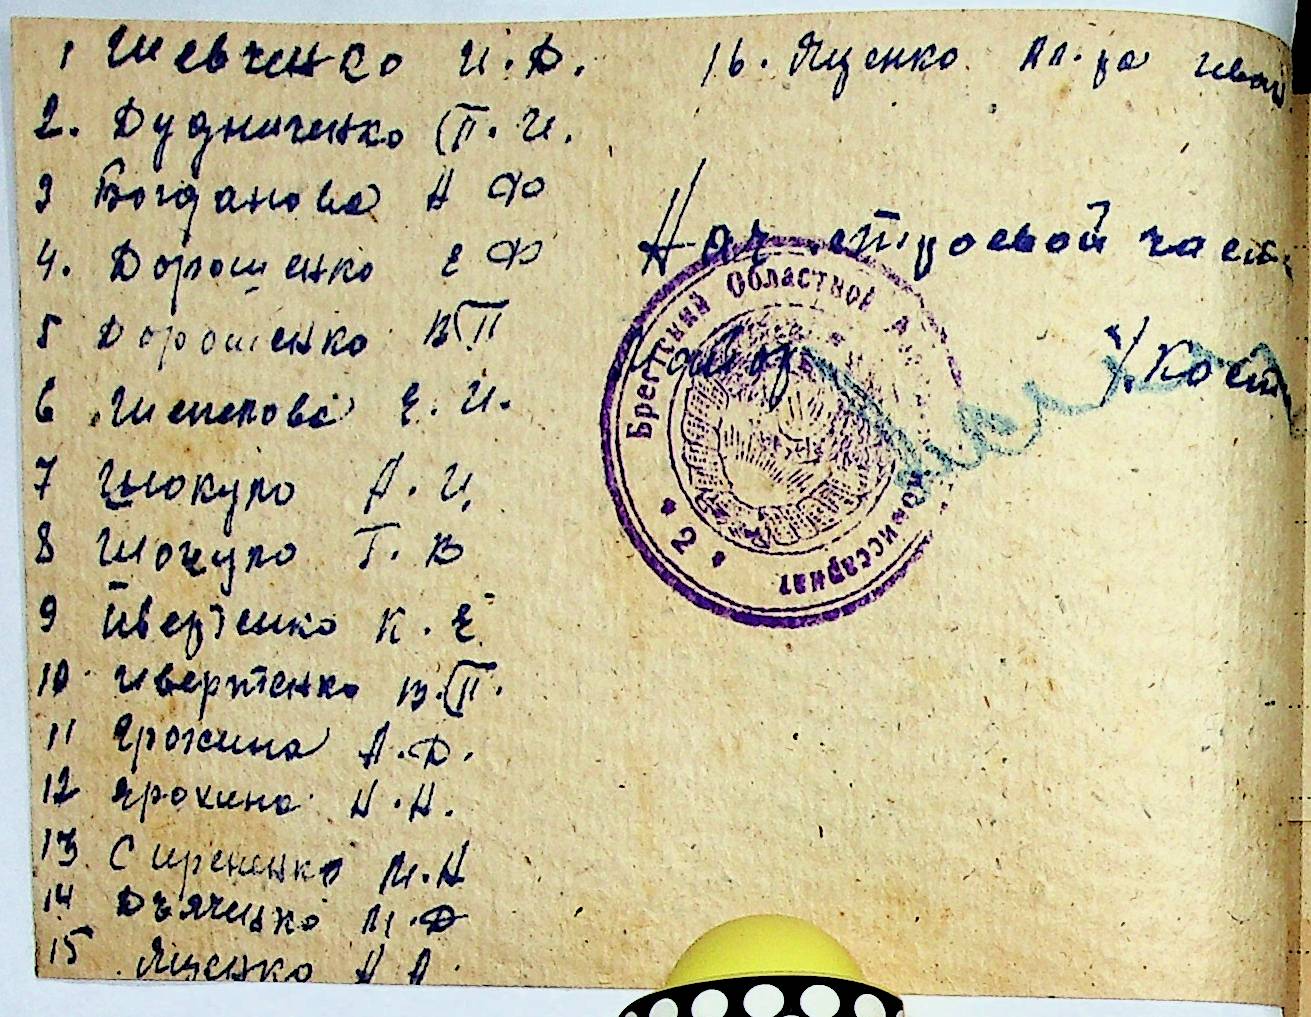 1 Шевченко И.Д.
2. Дудниченко П.И.
3 Богданова А Ф
4. Дорошенко Е Ф
5 Дорошенко В П
6 Шепелова Е.И.
7 Шокуло А.И.
8 Шокуло Г.В
9 Ивертенко К.Е
10 Ивертенко В.П.
11 Ярохина А.Д.
12 Ярохина Н.Н.
13 Сирененко М.А
14 Дъяченко М.Д
15 Яценко А А.
16. Яценко Ал-ра Иван
Нач. строевой част
Майор /Кост
Брестский Областной
комиссариат
* 2 *